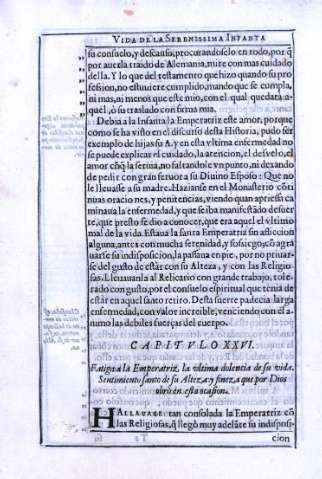 VIDA DE LA SERENISSIMA INFANTA
su consuelo, y descanso, procurandoselo en todo, por q̃
por auerla traido de Alemania, mire con mas cuidado
della. Y lo que del testamento que hizo quando su pro
fession, no estuuiere cumplido, mando que se cumpla,
ni mas, ni menos que este mio, con el qual quedarà a-
quel, ò su traslado con firma mia.
Debia a la Infanta la Emperatriz este amor, porque
como se ha visto en el discurso desta Historia, pudo ser
exemplo de hijas su A. y en esta vltima enfermedad no
se puede explicar el cuidado, la atencion, el desvelo, el
amor cõ q̃ la seruia, no faltandole vn punto, ni dexando
de pedir con gran feruor a su Diuino Esposo: Que no
le lleuasse a su madre. Hazianse en el Monasterio cõti
nuas oraciones, y penitencias, viendo quan apriessa ca
minaua la enfermedad, y que se iba manifestãdo desuer
te, que presto se dio a conocer, que era aquel el vltimo
mal de la vida. Estaua la santa Emperatriz sin afliccion
alguna, antes con mucha serenidad, y sosiego; cõ agra
uarse su indisposicion, la passaua en pie, por no priuar-
se del gusto de estàr con su Alteza, y con las Religio-
sas. Lleuauanla al Refitorio con grande trabajo, tole
rado con gusto, por el consuelo espiritual que tenia de
estàr en aquel santo retiro. Desta suerte padecia larga
enfermedad, con valor increible, venciendo con el a-
nimo las debiles fuerças del cuerpo.
CAPITVLO XXVI.
Fatiga a la Emperatriz, la vltima dolencia de su vida.
Sentimiento santo de su Alteza, y fineza que por Dios
obrò en esta ocasion.
HALLAUASE tan consolada la Emperatriz cõ
las Religiosas, q̃ llegò muy adelãte su indisposi-
cion